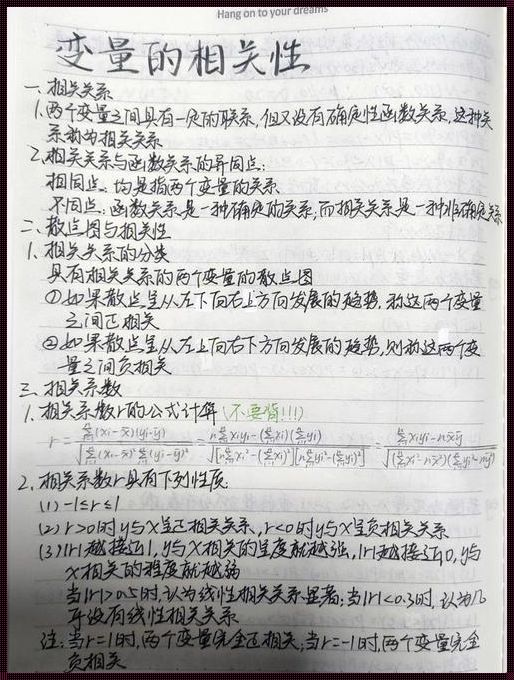 Hang on to your dreams
变量的相关性
一、相关关系
1.两个变量之间具有一定的联系,但又没有确定性函数关系,这种关
系称为相关关系
2.相关关系与函数关系的异同点:
相同点:均是指两个变量的关系
不同点:函数关系是一种确定的关系,而相关关系是一种非确定关系
二、散点图与相关性
1.相关关系的分类
具有相关关系的两个变量的散点图
①如果散点呈从左下向右上方向发展的趋势,称这两个变量
之间正相关
②如果散点呈从左上向右下方向发展的趋势,则称这两个变
量之间负相关
三、相关系数
1.相关系数r的公式计算(不要背!!!)
r=\frac{\sum_{i=1}^{n}(xi-x̄)(yi-ȳ)}{\sqrt{\sum_{i=1}^{n}(xi-x̄)^2\sum_{i=1}^{n}(yi-ȳ)^2}}=\frac{n\sum_{i=1}^{n}xiyi-(\sum_{i=1}^{n}xi)(\sum_{i=1}^{n}yi)}{\sqrt{[n\sum_{i=1}^{n}xi^2-(\sum_{i=1}^{n}xi)^2][n\sum_{i=1}^{n}yi^2-(\sum_{i=1}^{n}yi)^2]}}=\frac{\sum_{i=1}^{n}xiyi-nx̄ȳ}{\sqrt{(\sum_{i=1}^{n}xi^2-nx̄^2)(\sum_{i=1}^{n}yi^2-nȳ^2)}}
2.相关系数r具有下列性质:
(1)-1≤r≤1
(2)r>0时y与x呈正相关关系,r<0时y与x呈负相关关系
(3)|r|越接近1,y与x相关的程度就越强,|r|越接近0,y与
x相关的程度就越弱
当|r|>0.5时,认为线性相关关系显著;当|r|<0.3时,认为几
乎没有线性相关关系
注:当r=1时,两个变量完全正相关;当r=-1时,两个变量完全
负相关